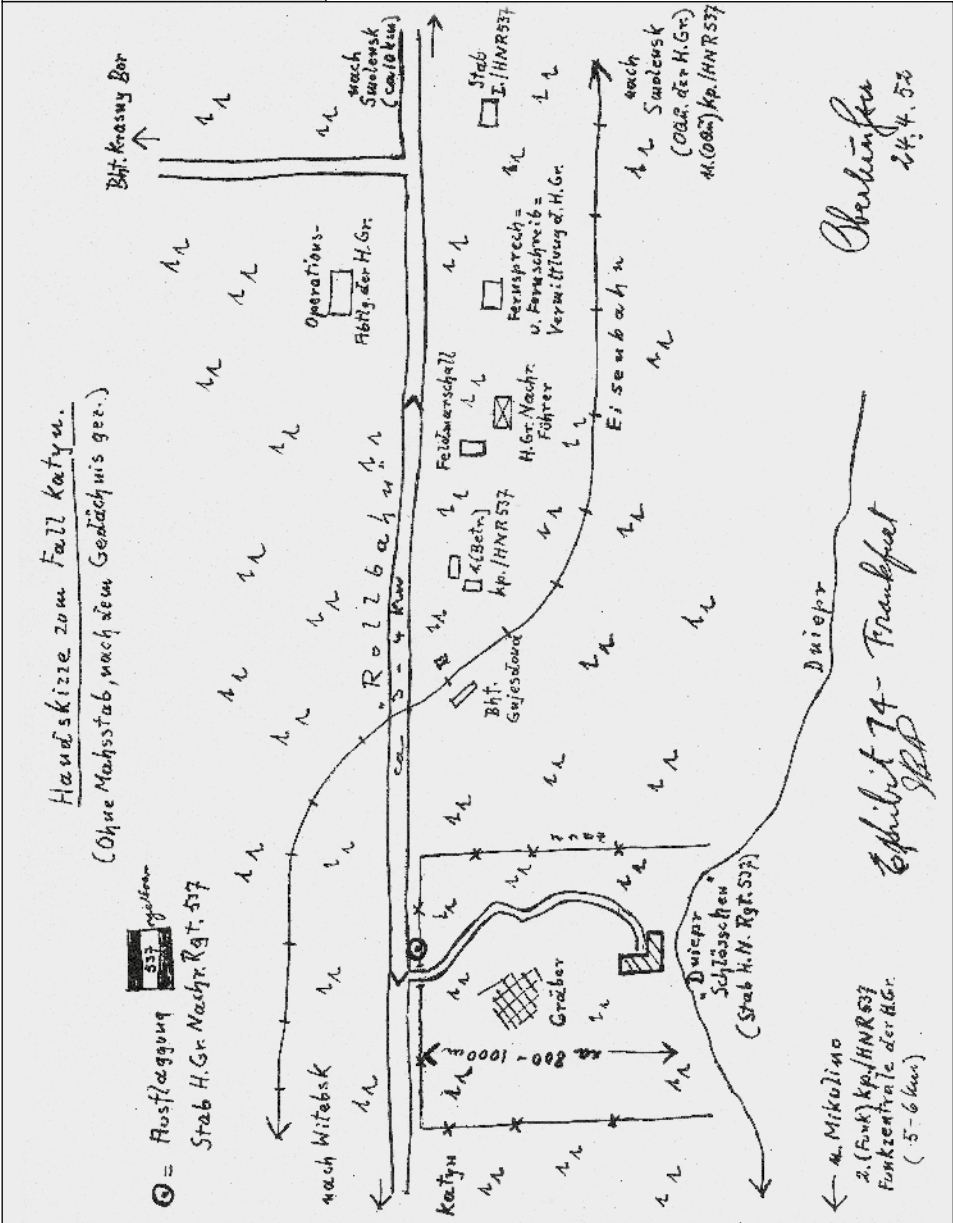 Handskizze zum Fall Katyn.
(Ohne Mahsstab, nach dem Gedächnis gez.)
= Ausflaggung
Stab H.Gr. Nachr. Rgt. 537
537
Bhf. Krasny Bor
nach
Smolensk
(ca 10 km)
Operations-
Abtlg. der H.Gr.
nach Witebsk
"Rollbahn"
ca 3-4 km
Katyn
Stab
I./HNR537
Fernsprech=
u. Fernschreib=
Vermittlung d. H.Gr.
Feldmarschall
H.Gr. Nachr.
Führer
4(Betr.)
kp./HNR537
Bhf.
Gnjesdowa
Eisenbahn
nach
Smolensk
(OQu. der H.Gr.)
u.(OQu) kp./HNR537
Gräber
ca 800 - 1000 m
"Dniepr
Schlösschen"
(Stab H.N. Rgt. 537)
Dniepr
n. Mikulino
2.(Funk) kp./HNR537
Funkzentrale der H.Gr.
(5-6 km)
Exhibit 14 - Frankfurt
24.4.52